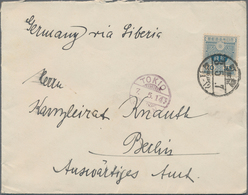 Germany via Siberia
Herrn
Kanzleirat Knauth
Berlin
Auswärtiges Amt.
TOKIO